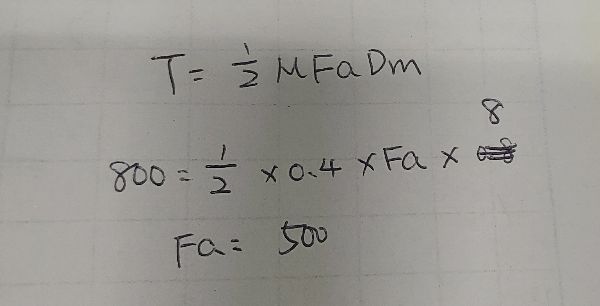 T = 1/2 μ Fa Dm
800 = 1/2 × 0.4 × Fa × 8
Fa = 500